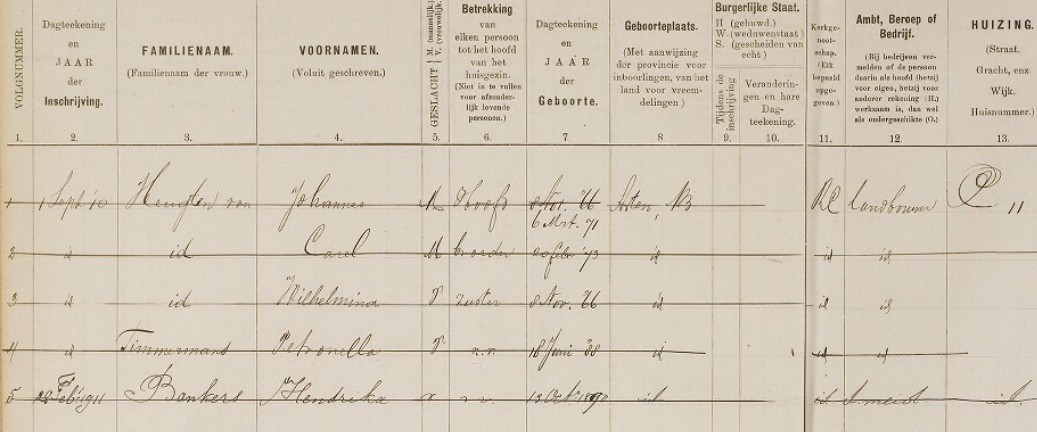 VOLGNUMMER.
Dagteekening
en
JAAR
der
Inschrijving.
FAMILIENAAM.
(Familienaam der vrouw.)
VOORNAMEN.
(Voluit geschreven.)
GESLACHT
M. (mannelijk.)
V. (vrouwelijk.)
Betrekking
van
elken persoon
tot het hoofd
van het
huisgezin.
(Niet in te vullen
voor afzonder-
lijk levende
personen.)
Dagteekening
en
JAAR
der
Geboorte.
Geboorteplaats.
(Met aanwijzing
der provincie voor
inboorlingen, van het
land voor vreem-
delingen)
Burgerlijke Staat.
H (gehuwd.)
W. (weduwenstaat)
S. (gescheiden van
echt)
Tijdens de
inschrijving
Veranderin-
gen en hare
Dag-
teekening.
Kerkge-
noot-
schap.
(Elk
bepaald
opge-
geven.)
Ambt, Beroep of
Bedrijf.
(Bij bedrijven ver-
melden of de persoon
daarin als hoofd (hetzij
voor eigen, hetzij voor
anderer rekening (H.)
werkzaam is, dan wel
als ondergeschikte (O.)
HUIZING.
(Straat,
Gracht, enz.
Wijk.
Huisnummer.)
1. 2. 3. 4. 5. 6. 7 8 9. 10. 11. 12. 13.
1 1 Sept '10 Heugten van Johannes M Hoofd 8 Nov. 76 Asten, NB RC Landbouwer C 11
6 Mrt. 71
2 id id Carel M broeder Febr '73 id id id
3 id id Wilhelmina V zuster 8 Nov. 76 id id id
4 id Timmermans Petronella V n.n. 18 Juni '88 id id id
5 22 Feb 1911 Bankers Hendrika v n. 12 Oct 1890 id id d. meid id.